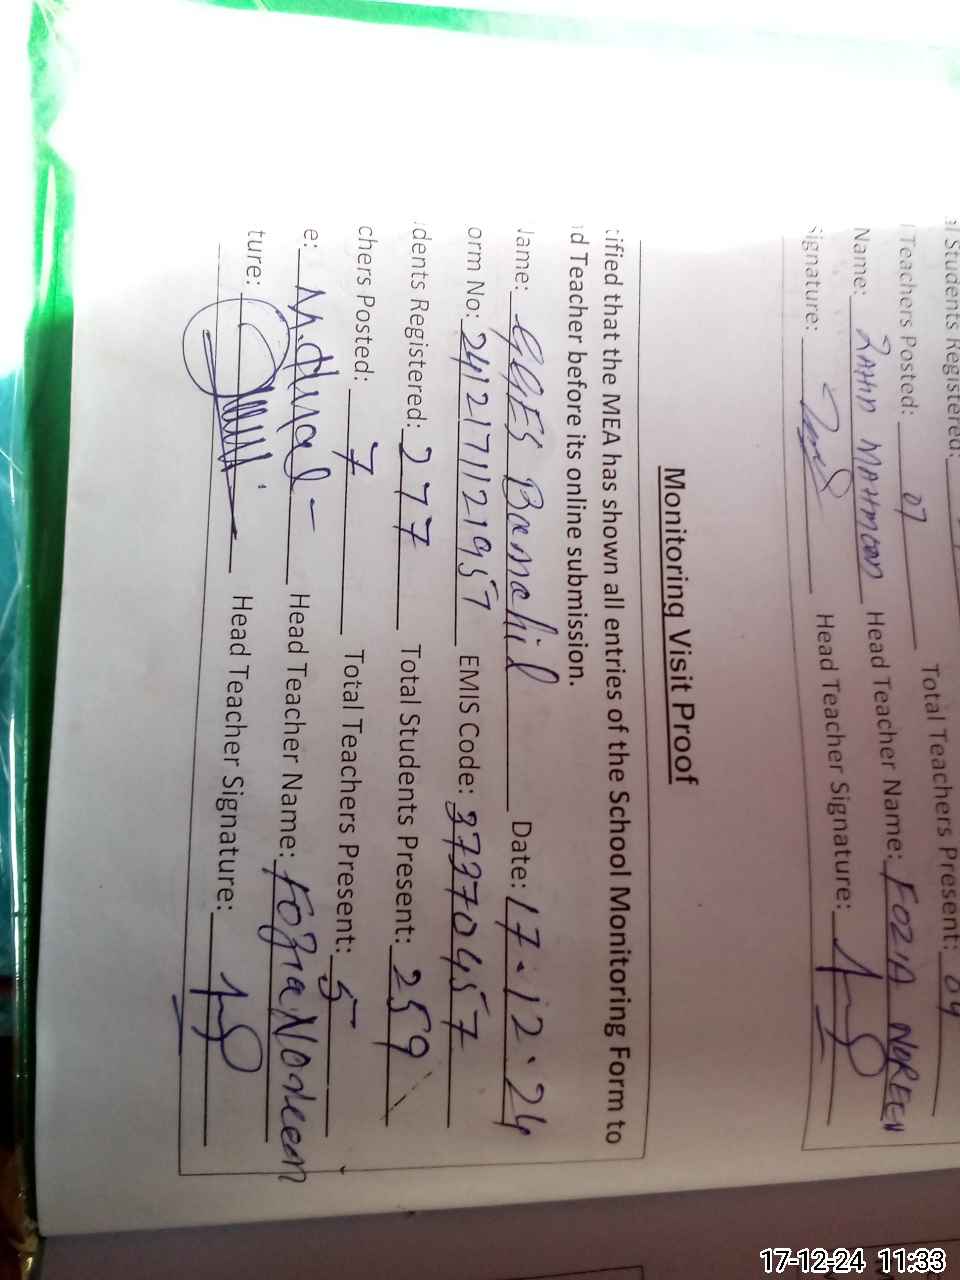 al Students Registered:
l Teachers Posted: 07 Total Teachers Present: 04
Name: ZAHID MAHMOOD Head Teacher Name: FOZIA NOREEN
Signature: Head Teacher Signature:
Monitoring Visit Proof
tified that the MEA has shown all entries of the School Monitoring Form to
d Teacher before its online submission.
Name: GGES Date: 17.12.24
orm No: EMIS Code: 37370457
dents Registered: 277 Total Students Present: 259
chers Posted: 7 Total Teachers Present: 5
e: Head Teacher Name: Fozia Noreen
ture: Head Teacher Signature:
17-12-24 11:33